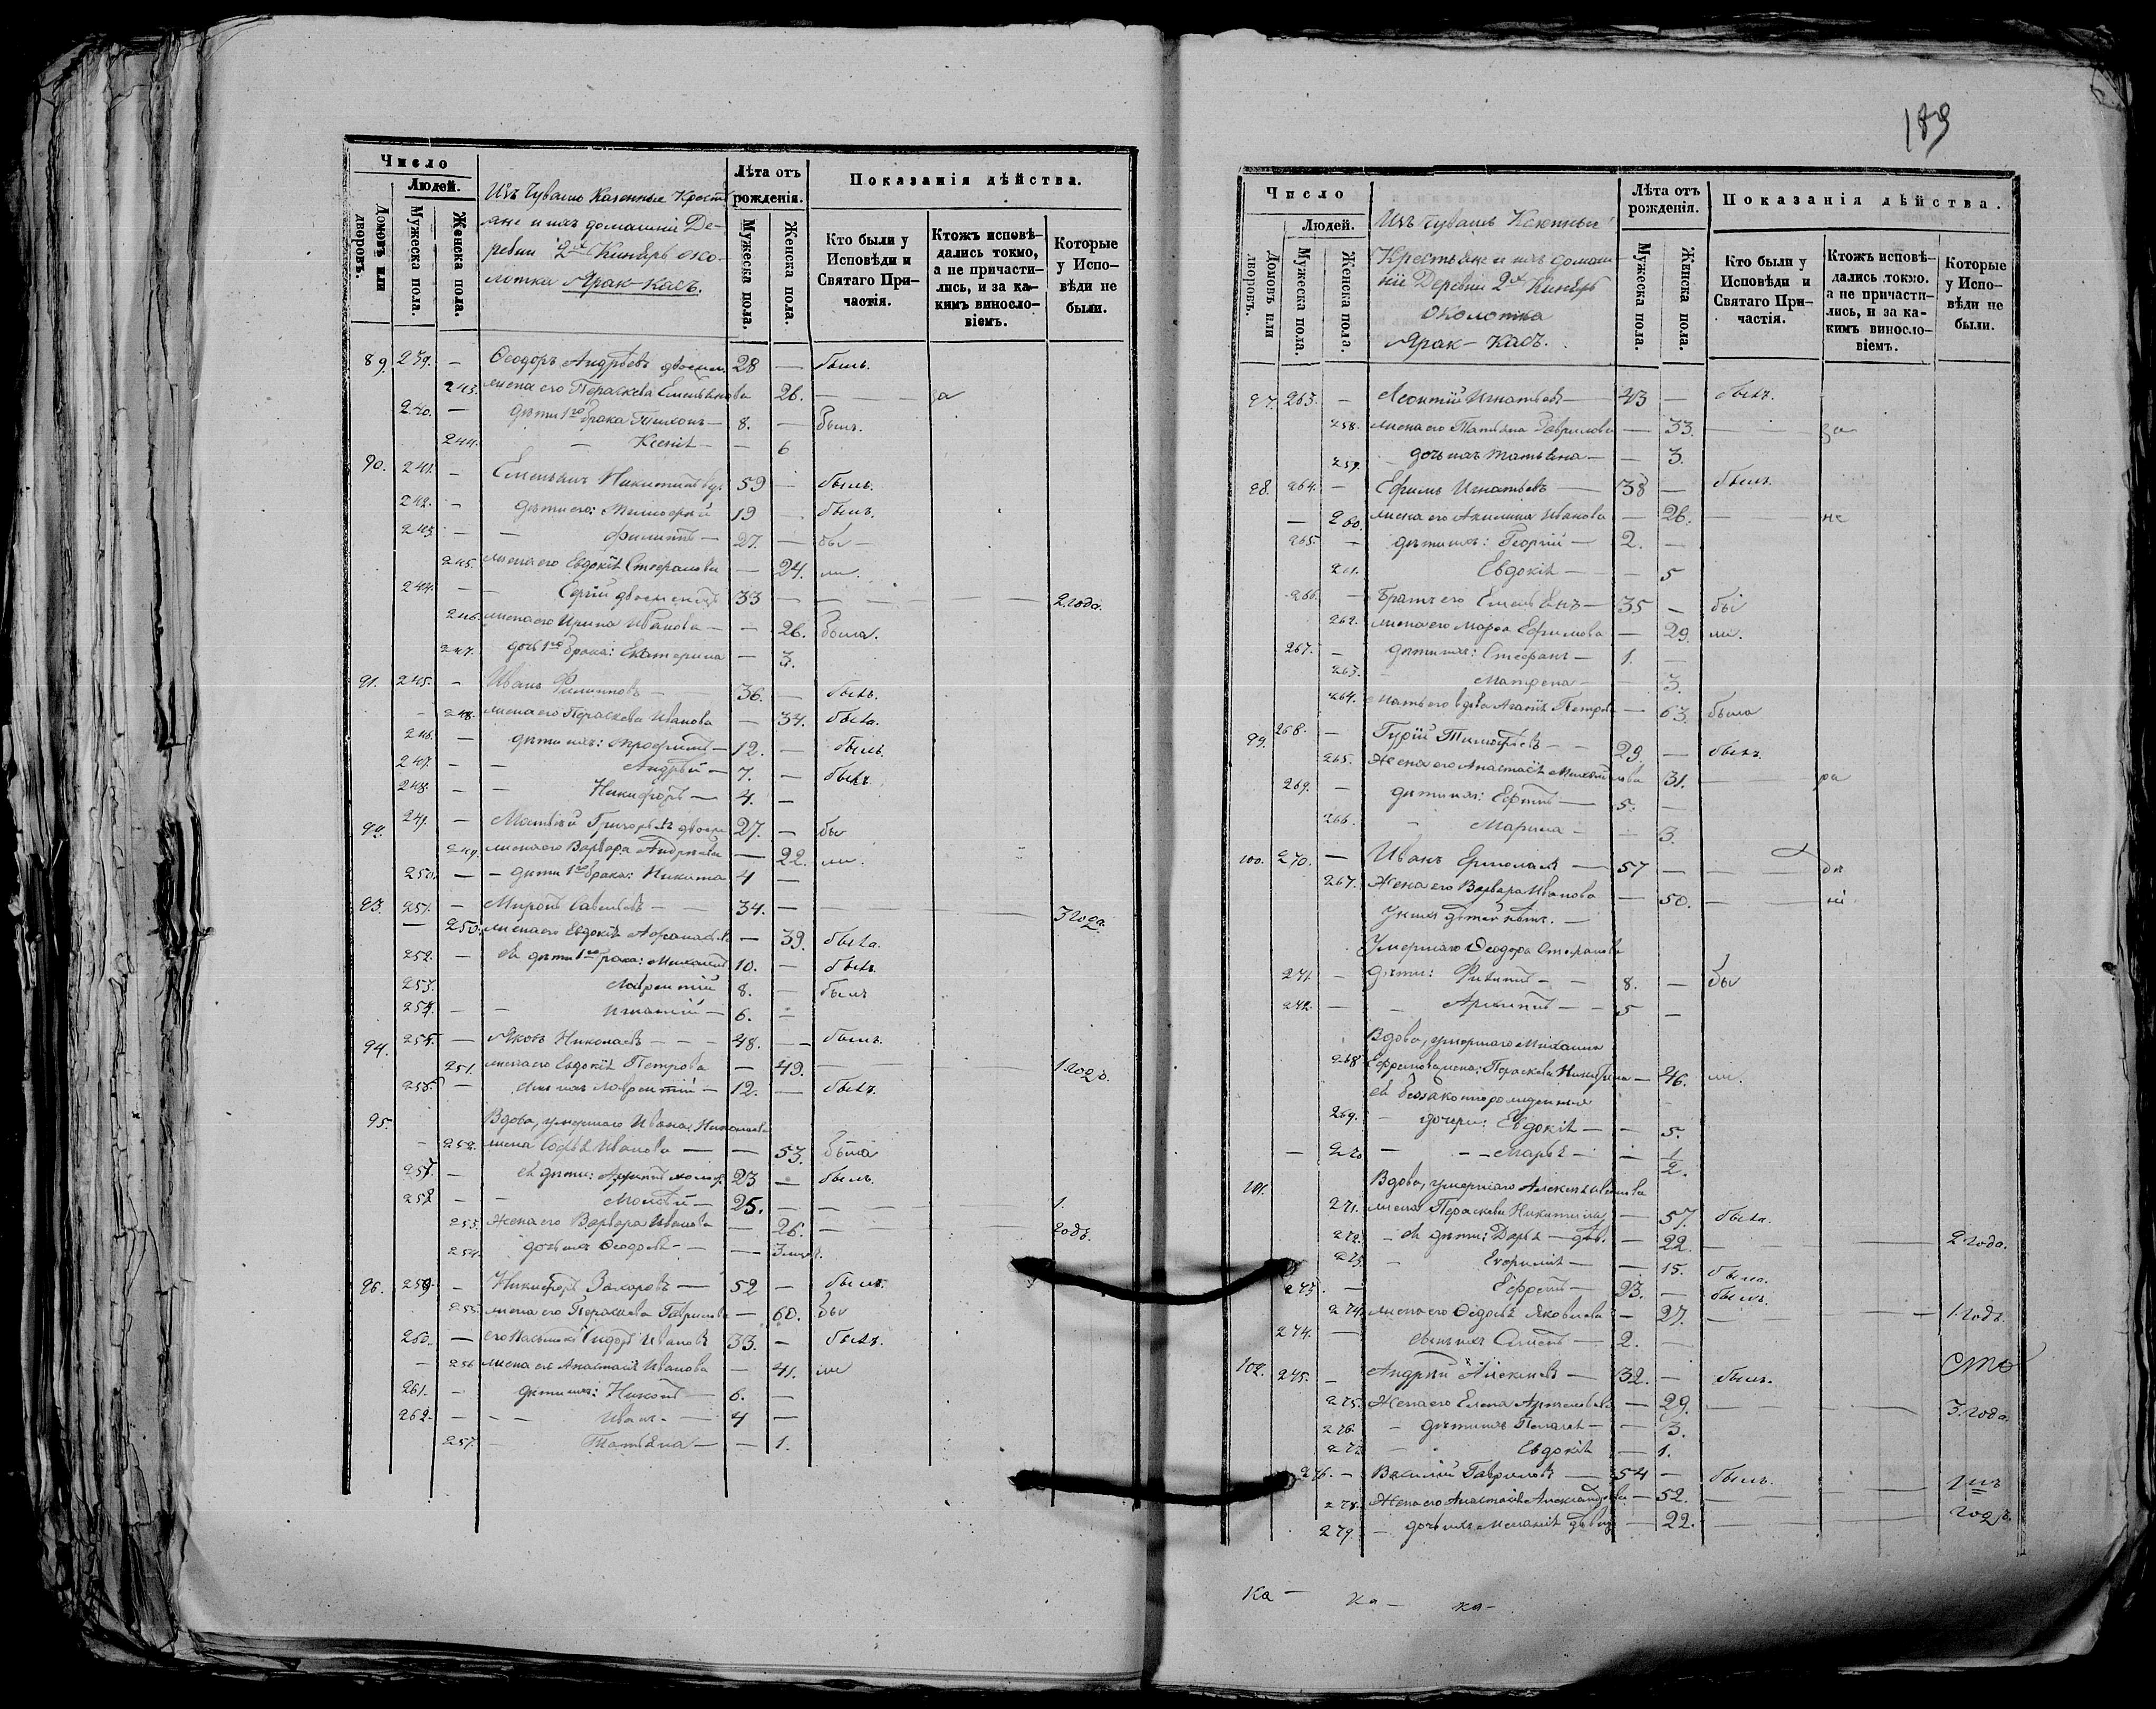 Число
Людей.
Домовъ или дворовъ.
Мужеска пола.
Женска пола.
Изъ Чувашъ Казенные Крестья
ане и ихъ домашніи Де-
ревни 2й Киняръ око-
лотка Ярак-касъ.
Лѣта отъ рожденія.
Мужеска пола.
Женска пола.
Показанія дѣйства.
Кто были у Исповѣди и Святаго При-частія.
Ктожъ исповѣ-дались токмо, а не причасти-лись, и за ка-кимъ виносло-віемъ.
Которые у Испо-вѣди не были.
89. 239. — Ѳеодоръ Андрѣевъ 28 — былъ.
243. жена его Параскева Емельянова 26. — за
240. — дѣти 1го брака Тихонъ — 8. — былъ.
244. — Ксенія — 6
90. 241. — Емельянъ Никитинъ вд. 59 — былъ.
242. — дѣти его: Тимоѳей 19 — былъ.
243. — Филиппъ — 27. — бы —
245. жена его Евдокія Стефанова — 24. ли.
244. — Сергій двоеженецъ 33 — 2 года.
246. жена его Ирина Иванова — 26. была.
247. дочь 1го брака: Екатерина — 3.
91. 245. — Иванъ Филиповъ — 36. — былъ.
248. жена его Параскева Иванова — 34. была.
246. — дѣти ихъ: — 12. — былъ
247. — Андрей — 7. — былъ
248. — Никифоръ — 4. —
92. 249. — Матвѣй Григорьевъ 27. — бы
249. жена его Варвара Андреева — 22. ли.
250. — дѣти 1го брака: Никита 4 —
93. 251. — Миронъ Савельевъ — 34. — 3 года
250. жена его Евдокія — 39. была.
252. — дѣти 1го брака: Михаилъ 10. — былъ.
253. Лаврентій 8. — былъ
254. — Игнатій — 6. —
94. 255. — Яковъ Николаевъ — 48. — былъ.
251. жена его Евдокія Петрова — 49. — 1 годъ.
256. — сынъ ихъ Лаврентій — 12. — былъ.
95. Вдова, умершаго Ивана Николаева
252. жена Софья Иванова — 53. была
257. — ея дѣти: холос. 23 — былъ.
258 — Моисей — 25. — 1.
253. Жена его Варвара Иванова — 26. — годъ.
254. дочь ихъ Ѳеодосія — 3 мѣс.
96. 259. — Никифоръ Захаровъ — 52 — былъ.
255. жена его Параскева Гаврилова — 60. бы
260. — его пасынокъ Сидоръ Ивановъ 33. — былъ.
256 жена его Анастасія Иванова — 41. ли
261. — дѣти ихъ: Никонъ — 6. —
262. — Иванъ — 4 —
257. Татьяна — 1.
189
Число
Людей.
Домовъ или дворовъ.
Мужеска пола.
Женска пола.
Изъ Чувашъ Казенные
Крестьяне и ихъ домаш-
ніе Деревни 2й Киняръ
околотка
Ярак-касъ.
Лѣта отъ рожденія.
Мужеска пола.
Женска пола.
Показанія дѣйства.
Кто были у Исповѣди и Святаго При-частія.
Ктожъ исповѣ-дались токмо. а не причасти-лись, и за ка-кимъ виносло-віемъ.
Которые у Испо-вѣди не были.
97. 263. — Леонтій Игнатьевъ — 43 — былъ.
258. жена его Татьяна Гаврилова — 33. — за
259. дочь ихъ Татьяна — 3.
98. 264. — Ефимъ Игнатьевъ — 38 — былъ.
260. жена его Акилина Иванова — 26. — не
265. — дѣти ихъ: Георгій — 2. —
261. Евдокія — 5
266. — Братъ его Емельянъ — 35 — бы
262. жена его Марѳа Ефимова — 29. ли.
267. — дѣти ихъ: Стефанъ — 1. —
263. Матрена — 3.
264. Мать его вдова Агафія Петрова — 63. была
99. 268. — Гурій Тимофѣевъ — 29. — былъ.
265. Жена его Анастасія Михайлова 31. — ра
269. — дѣти ихъ: — 5. —
266. — Марина — 3.
100. 270. — Иванъ Ермолаевъ — 57 —
267. Жена его Варвара Иванова — 50. — ні
У нихъ дѣтей нѣтъ. —
Умершаго Ѳеодора Стефанова
271. — дѣти: Филиппъ — 8. — бы
272. — Архиппъ — 5 —
Вдова, умершаго Михаила
268 Ефремова жена: Параскева Никитина — 46. ли.
ея беззаконнорожденныя
269. — дочери: Евдокія — 5.
270 — Марья — 1/2.
101. Вдова, умершаго Алексѣя Иванова
271. жена Параскева Никитина — 57. была.
272. — ея дѣти: Дарья — дѣв. — 22. — 2 года.
273. — Евфимія — 15. была.
273. — Ефремъ — 23. — былъ.
274. жена его Ѳедосья Яковлева — 27. — 1 годъ.
274. — сынъ ихъ — 2. —
102. 275. — Андрей Алексѣевъ — 32. — былъ.
275. Жена его Елена Артемьева — 29. — 3 года.
276. — дѣти ихъ Пелагея — 3.
277. Евдокія — 1.
276. — Василій Гавриловъ — 54 — былъ.
278. Жена его Анастасія Александрова — 52.
279. — дочь ихъ Меланія дѣвица — 22. — годъ.
Ка — ка — ка —